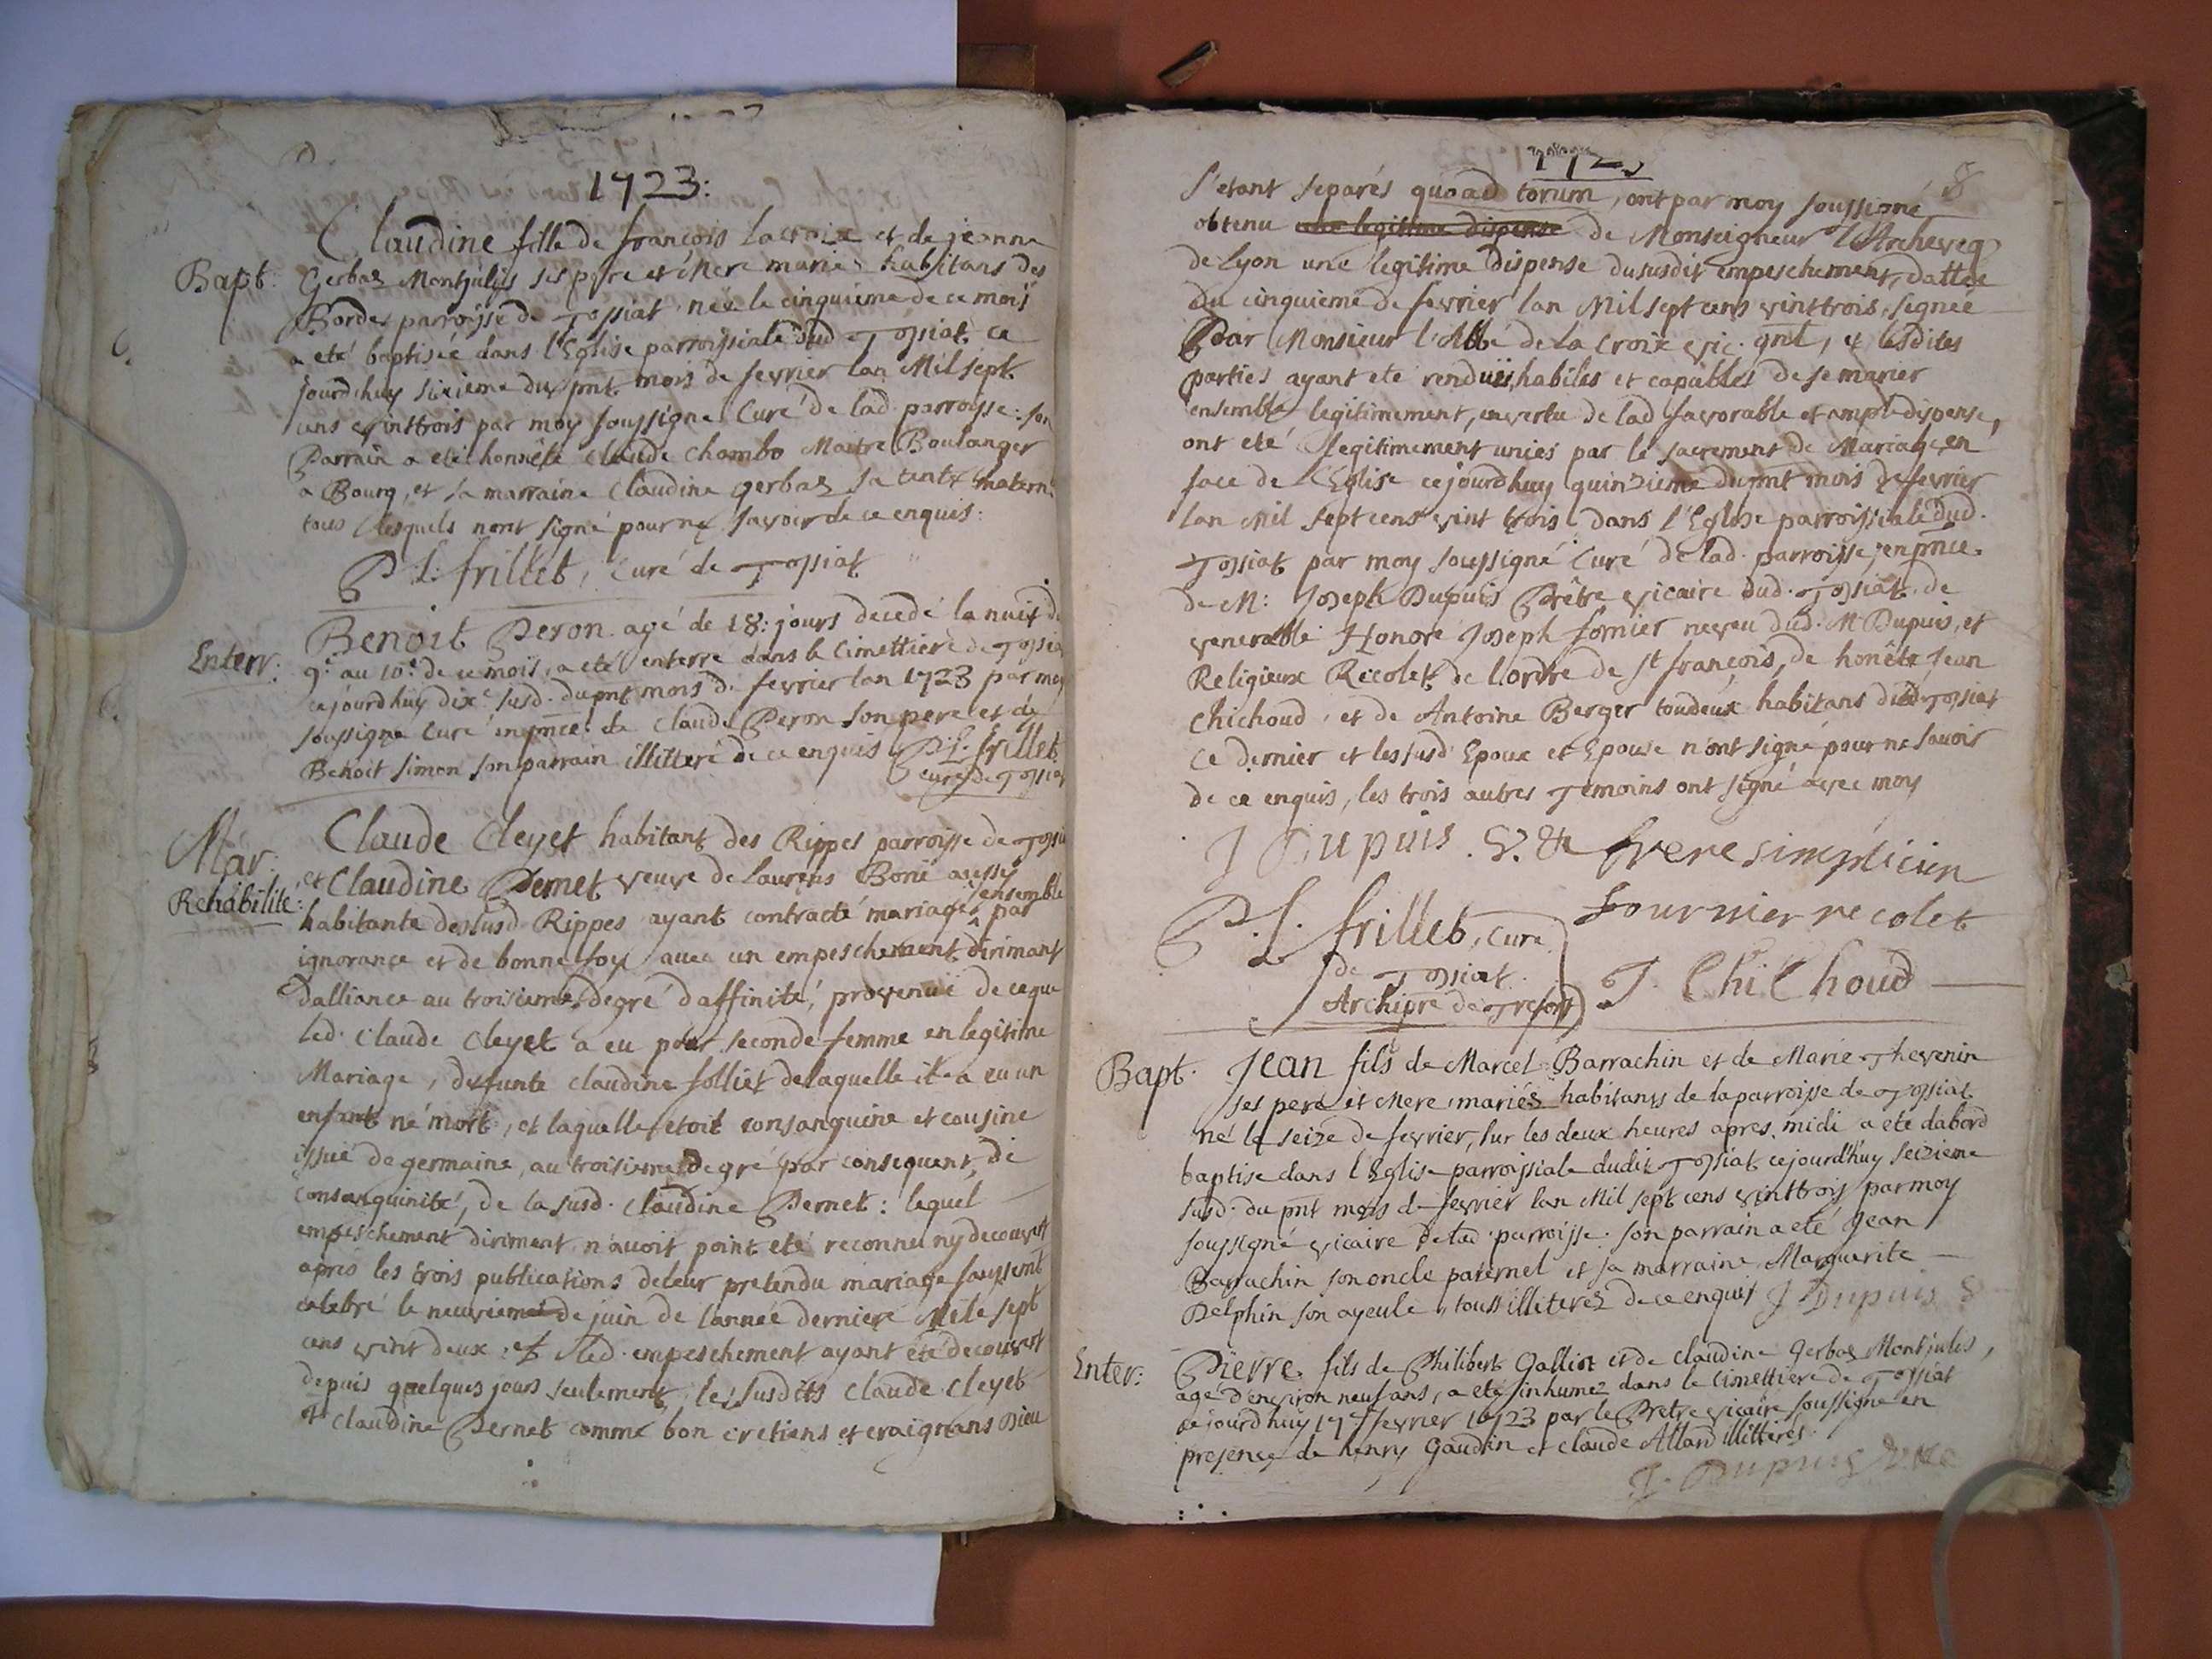 1723:
Claudine fille de françois Lacroix et de jeanne
Bapt. Gerbaz Montjulijs ses pere et Mere mariés habitans des
Bordes parroysse de Tossiat née le cinquieme de ce mois
a eté baptisée dans l'Eglise parroissiale dud Tossiat ce
jourdhuy sixieme du pnt mois de fevrier lan Mil sept
cens vinttrois par moy soussigné Curé de lad. parroysse: son
Parrain a eté honnête Claude Chambo Maitre Boulanger
a Bourg, et sa marraine Claudine gerbaz sa tante matern.
tous lesquels nont signé pour ne savoir de ce enquis:
P L: frillet, Curé de Tossiat
Benoit Peron agé de 18: jours decedé la nuit du
Enterr: 9e au 10e de ce mois, a eté enterré dans le Cimettiere de Tossia
cejourdhuy dixe susd. du pnt mois de fevrier lan 1723 par moy
soussigné Curé en pnce de Claude Peron son pere et de
Benoit simon son parrain illitteré de ce enquis P. L. frillet
curé de Tossiat
Mar: Claude Cleyet habitant des Rippes parroysse de Tossia
et Claudine Pernet veuve de laurens Borie aussy
Rehabilité: habitante des susd Rippes ayant contracté mariage ensemble par
ignorance et de bonne foy avec un empeschement dirimant
dalliance au troisieme degré d'affinité, provenüe de ce que
led. Claude Cleyet a eu pour seconde femme en legitime
Mariage, defunte Claudine folliet de laquelle il a eu un
enfant né mort, et laquelle etoit consanguine et cousine
issüe de germaine, au troisieme degré par consequent, de
consanguinité, de la susd. Claudine Pernet: lequel
empeschement diriment n'avoit point eté reconnu ny decouvert
aprés les trois publications de leur pretendu mariage faussemt
celebré le neuvieme de juin de lannée derniere Mile sept
cens vint deux: et led. empeschement ayant eté decouvert
depuis quelques jours seulement, les susdits Claude Cleyet
et Claudine Pernet comme bon cretiens et craignans Dieu
8
s'etant separés quoad torum, ont par moy soussigné
obtenu une legitime dispense de Monseigneur L'Archeveq
de Lyon une legitime dispense du susdit empeschement, dattée
du cinquieme de fevrier lan Mil sept cens vinttrois, signée
Par Monsieur l'Abbé de La Croix vic. gnl, et lesdites
parties ayant eté rendües habiles et capables de se marier
ensemble legitimement, en vertu de lad favorable et ample dispense,
ont eté legitimement uniés par le sacrement de Mariage, en
face de l'Eglise cejourdhuy quinzieme du pnt mois de fevrier
lan Mil sept cens vint trois dans l'Eglise parroissiale dud.
Tossiat par moy soussigné Curé de lad. parroisse, en pnce
de M: Joseph Dupuis Prêtre vicaire dud. Tossiat de
venerable Honoré Joseph fornier neveu dud. Mr Dupuis, et
Religieux Recolet de l'ordre de St françois, de honête Jean
Chichoud, et de Antoine Berger toudeux habitans dud Tossiat
Ce dernier et les susd Epoux et Epouse n'ont signé pour ne savoir
de ce enquis, les trois autres Temoins ont signé avec moy
J Dupuis frere simplicien
fournier recolet
P. L. frillet, Curé
de Tossiat
Archipre de Trefort
J. ChiChoud
Bapt. Jean fils de Marcel Barrachin et de Marie Thevenin
ses pere et Mere mariéz habitants de la parroisse de Tossiat
né le seize de fevrier, sur les deux heures apres midi a eté dabord
baptise dans l'Eglise parroissiale dudit Tossiat cejourd'huy seizieme
susd. du pnt mois de fevrier lan Mil sept cens vinttrois par moy
soussigné vicaire de lad parroisse. son parrain a eté Jean
Barrachin son oncle paternel et sa marraine Marguerite
Delphin son ayeule, touss illiterez de ce enquis J Dupuis
Enter: Pierre fils de Philibert Galliot et de claudine Gerbaz Montjules,
agé d'environ neuf ans, a eté inhumez dans le Cimettiere de Tossiat
cejourdhuy 17e fevrier 1723 par le Prêtre vicaire soussigné en
presence de henry Gaudin et claude Allard illitterés.
J. Dupuis